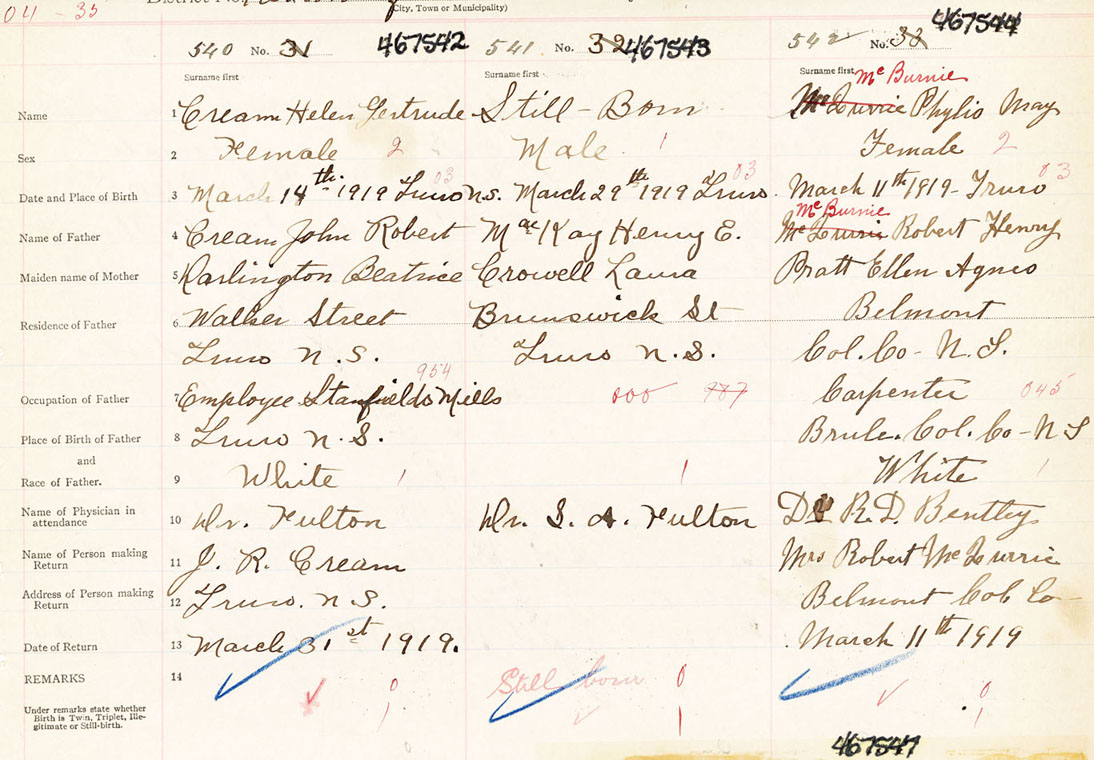 04 - 35
District No.
(City, Town or Municipality)
540 No. 31 467542 541 No. 32 467543 542 No. 33 467544
Surname first Surname first Surname first Mc Burnie
Name 1 Cream Helen Gertrude Still - Born Phylis May
Sex 2 Female 2 Male 1 Female 2
03 03 03
Date and Place of Birth 3 March 14th 1919 Truro N.S. March 29th 1919 Truro March 11th 1919 - Truro
Mc Burnie
Name of Father 4 Cream John Robert MacKay Henry E. Robert Henry
Maiden name of Mother 5 Darlington Beatrice Crowell Laura Pratt Ellen Agnes
Residence of Father 6 Walker Street Brunswick St Belmont
Truro N.S. Truro N.S. Col. Co - N.S.
954
Occupation of Father 7 Employee Stanfields Mills 000 987 Carpenter 045
Place of Birth of Father 8 Truro N.S. Brule. Col. Co - N S
and
Race of Father. 9 White 1 1 White 1
Name of Physician in
attendance 10 Dr. Fulton Dr. S. A. Fulton Dr R.D. Bentley
Name of Person making
Return 11 J. R. Cream Mrs Robert
Address of Person making
Return 12 Truro. N.S. Belmont Col Co
Date of Return 13 March 31st 1919. March 11th 1919
REMARKS 14 0 Still born 0 0
Under remarks state whether
Birth is Twin, Triplet, Ille-
gitimate or Still-birth. 1 1 1
0
467547